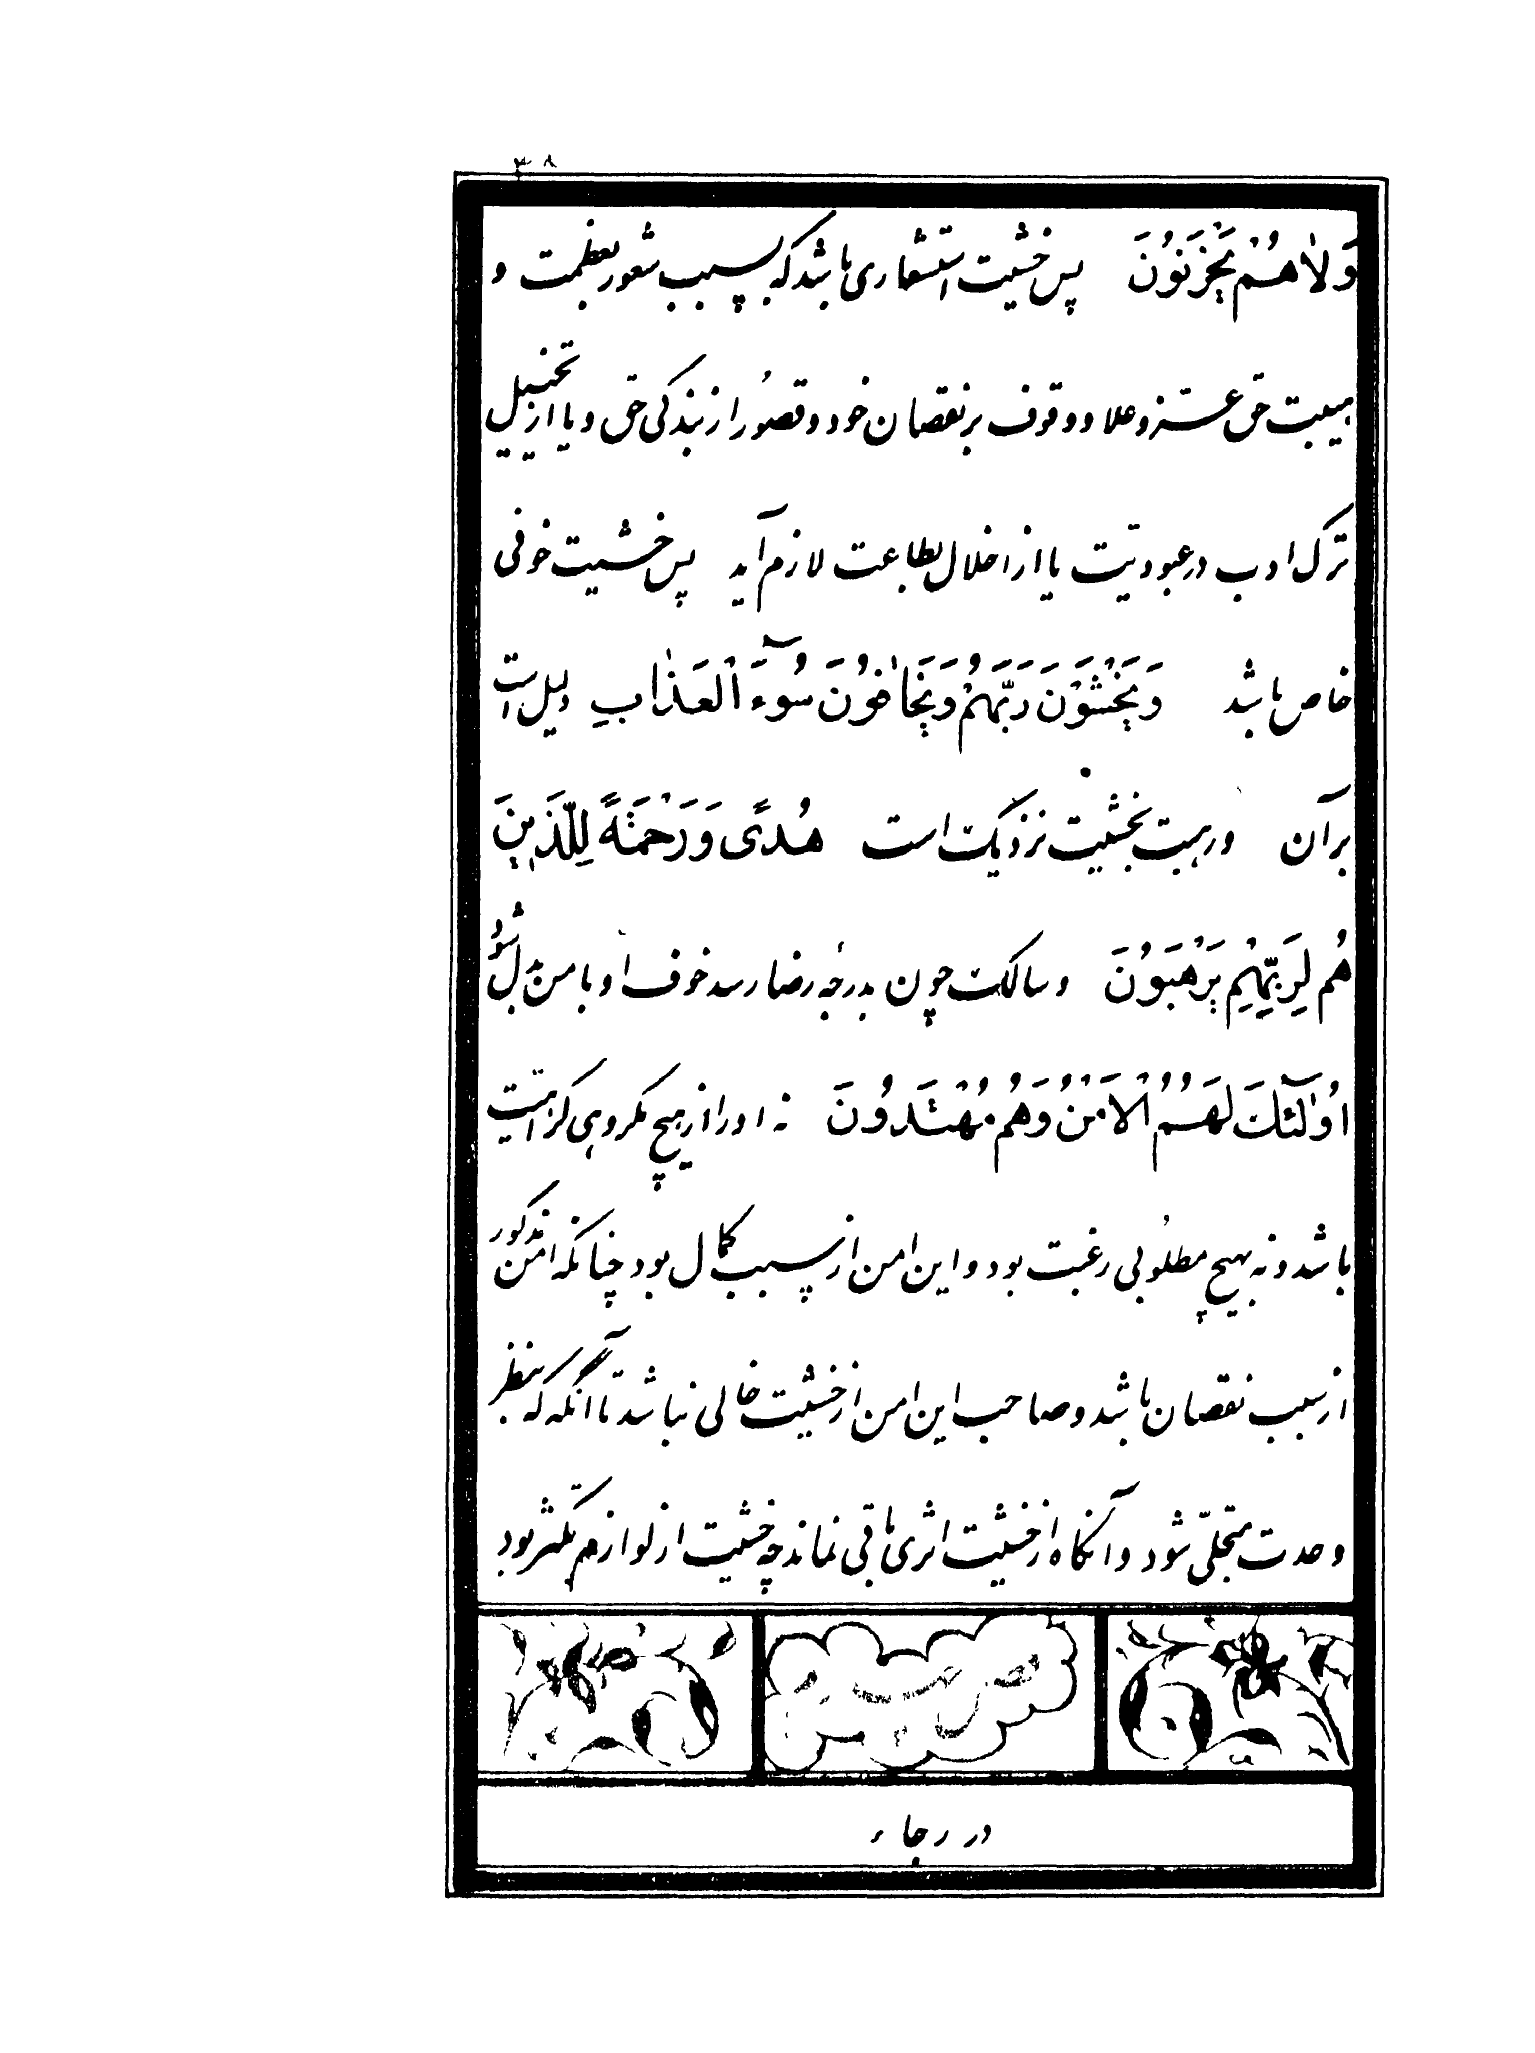 ۳۸
وَلاٰهُمْ يَحْزَنُونَ پس خشیت استشعاری باشد که بسبب شعور بعظمت و
هیبت حق عزّ و علا و وقوف بر نقصان خود و قصور از بندگی حق و یا از تخییل
ترک ادب در عبودیّت یا از اخلال بطاعت لازم آید پس خشیت خوفی
خاص باشد وَيَخْشَوْنَ رَبَّهُمْ وَيَخٰافُونَ سُوٓءَ الْعَذٰابِ دلیل است
بر آن ورهبت بخشیت نزدیک است هُدىً وَرَحْمَةً لِلَّذِينَ
هُم لِرَبِّهِمْ يَرْهَبُونَ و سالک چون بدرجهٔ رضا رسد خوف او بامن بدل شود
اُولٰٓئِكَ لَهُمُ الْاَمْنُ وَهُم مُهْتَدُونَ نه او را از هیچ مکروهی کراهیت
باشد و نه بهیچ مطلوبی رغبت بود و این امن از سبب کمال بود چنانکه امن مذکور
از سبب نقصان باشد و صاحب این امن از خشیت خالی نباشد تا آنگه که بنظر
وحدت متجلّی شود و آنگاه از خشیت اثری باقی نماند چه خشیت از لوازم تکثر بود
در رجاء